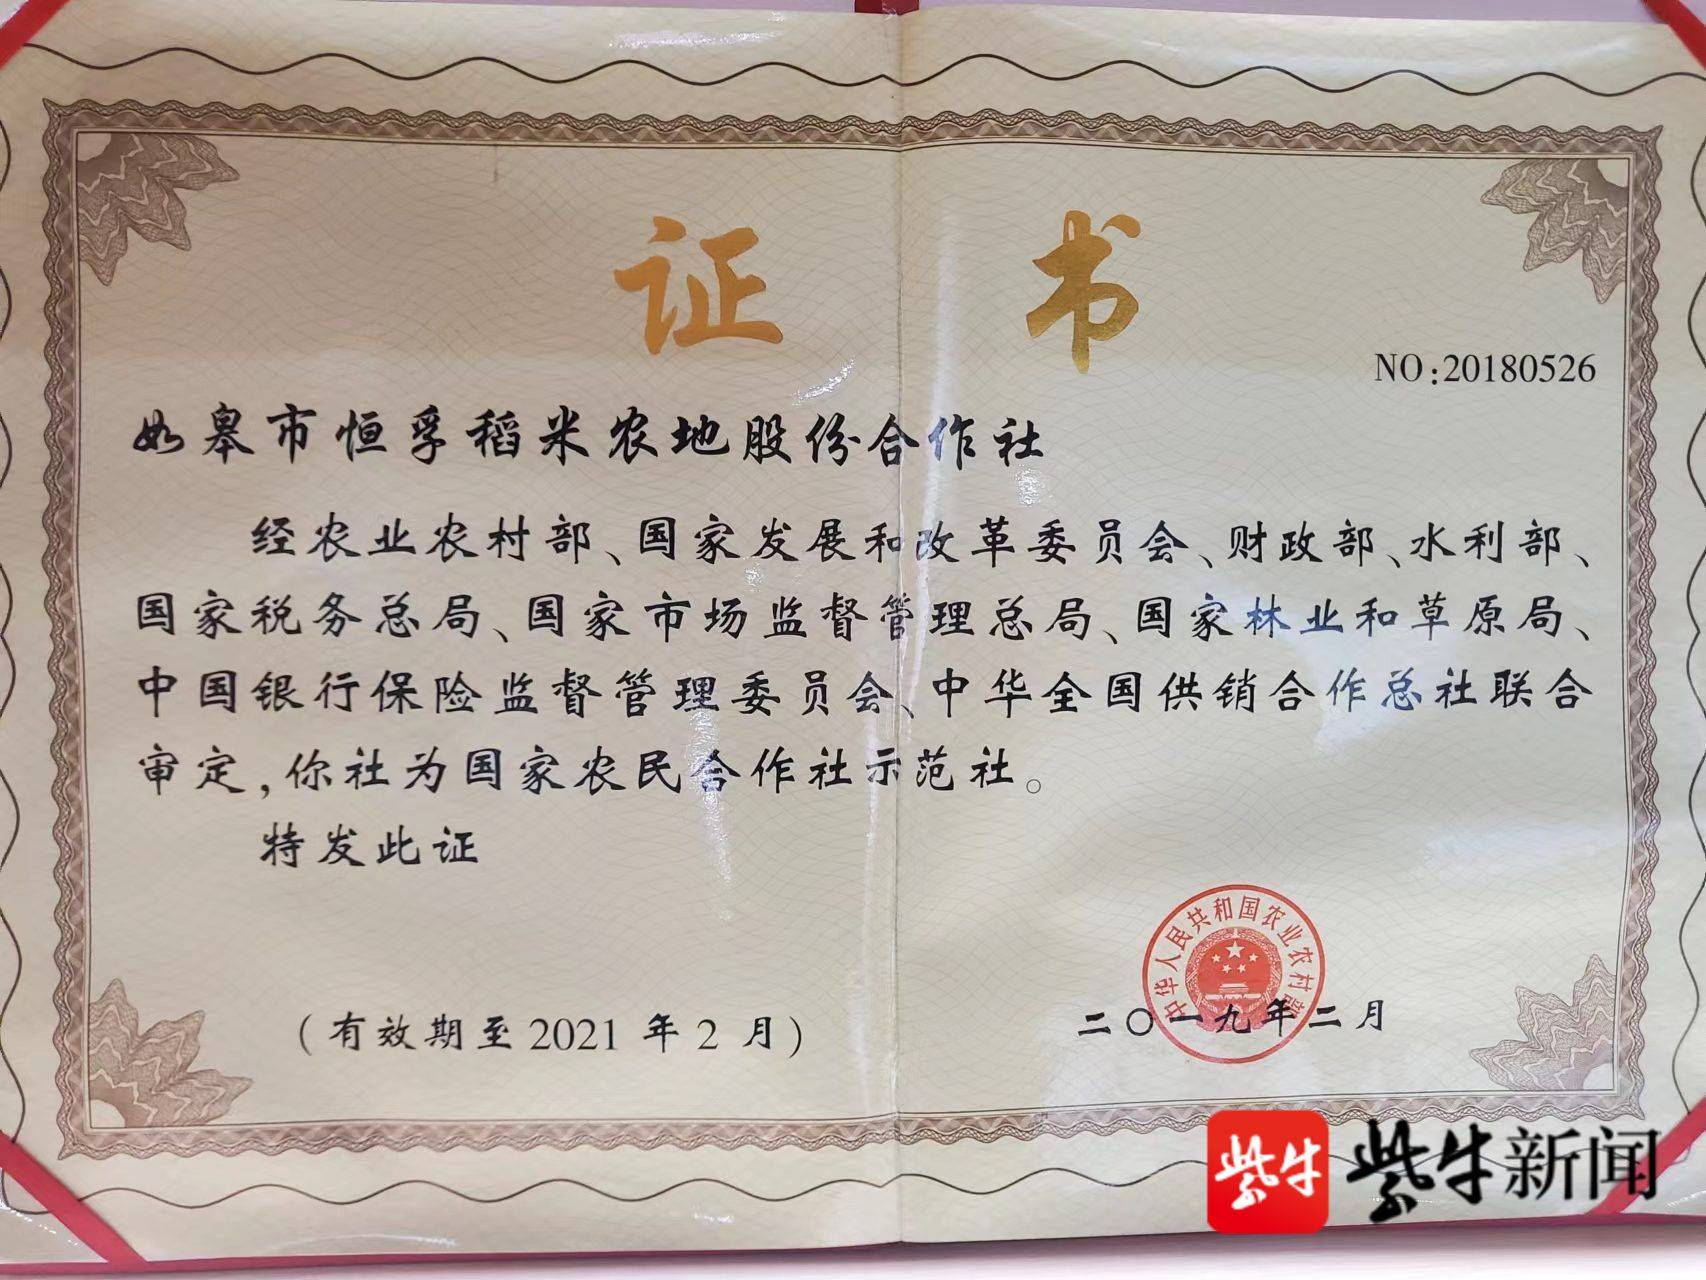 证 书
NO:20180526
如皋市恒孚稻米农地股份合作社
经农业农村部、国家发展和改革委员会、财政部、水利部、
国家税务总局、国家市场监督管理总局、国家林业和草原局、
中国银行保险监督管理委员会、中华全国供销合作总社联合
审定,你社为国家农民合作社示范社。
特发此证
中华人民共和国农业农村部
(有效期至2021年2月)
二〇一九年二月
紫牛 紫牛新闻